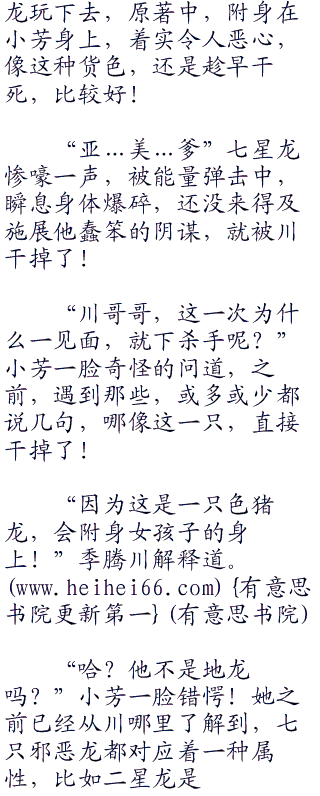 龙玩下去，原著中，附身在
小芳身上，着实令人恶心，
像这种货色，还是趁早干
死，比较好！
“亚…美…爹”七星龙
惨嚎一声，被能量弹击中，
瞬息身体爆碎，还没来得及
施展他蠢笨的阴谋，就被川
干掉了！
“川哥哥，这一次为什
么一见面，就下杀手呢？”
小芳一脸奇怪的问道，之
前，遇到那些，或多或少都
说几句，哪像这一只，直接
干掉了！
“因为这是一只色猪
龙，会附身女孩子的身
上！”季腾川解释道。
(www.heihei66.com) {有意思
书院更新第一} (有意思书院)
“哈？他不是地龙
吗？”小芳一脸错愕！她之
前已经从川哪里了解到，七
只邪恶龙都对应着一种属
性，比如二星龙是